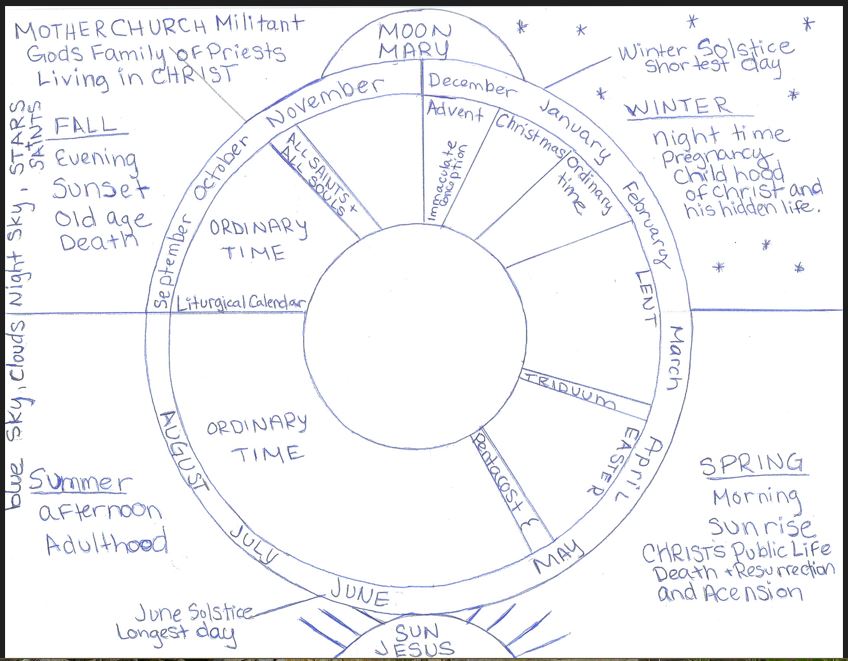 MOTHERCHURCH Militant
Gods Family of Priests
Living in CHRIST
MOON
MARY
Winter Solstice
shortest day
WINTER
night time
Pregnancy
Child hood
of christ and
his hidden life.
FALL
Evening
Sunset
Old age
Death
blue sky, clouds Night sky, STARS
SAINTS
September
October
November
December
January
February
March
April
MAY
JUNE
JULY
AUGUST
Advent
Immaculate
Conception
Christmas
Ordinary
time
LENT
TRIDUUM
EASTER
Pentacost &
ORDINARY
TIME
Liturgical Calendar
ORDINARY
TIME
ALL SAINTS +
ALL SOULS
Summer
afternoon
Adulthood
SPRING
Morning
Sunrise
CHRISTS Public Life
Death + Resurrection
and Acension
June Solstice
Longest day
SUN
JESUS